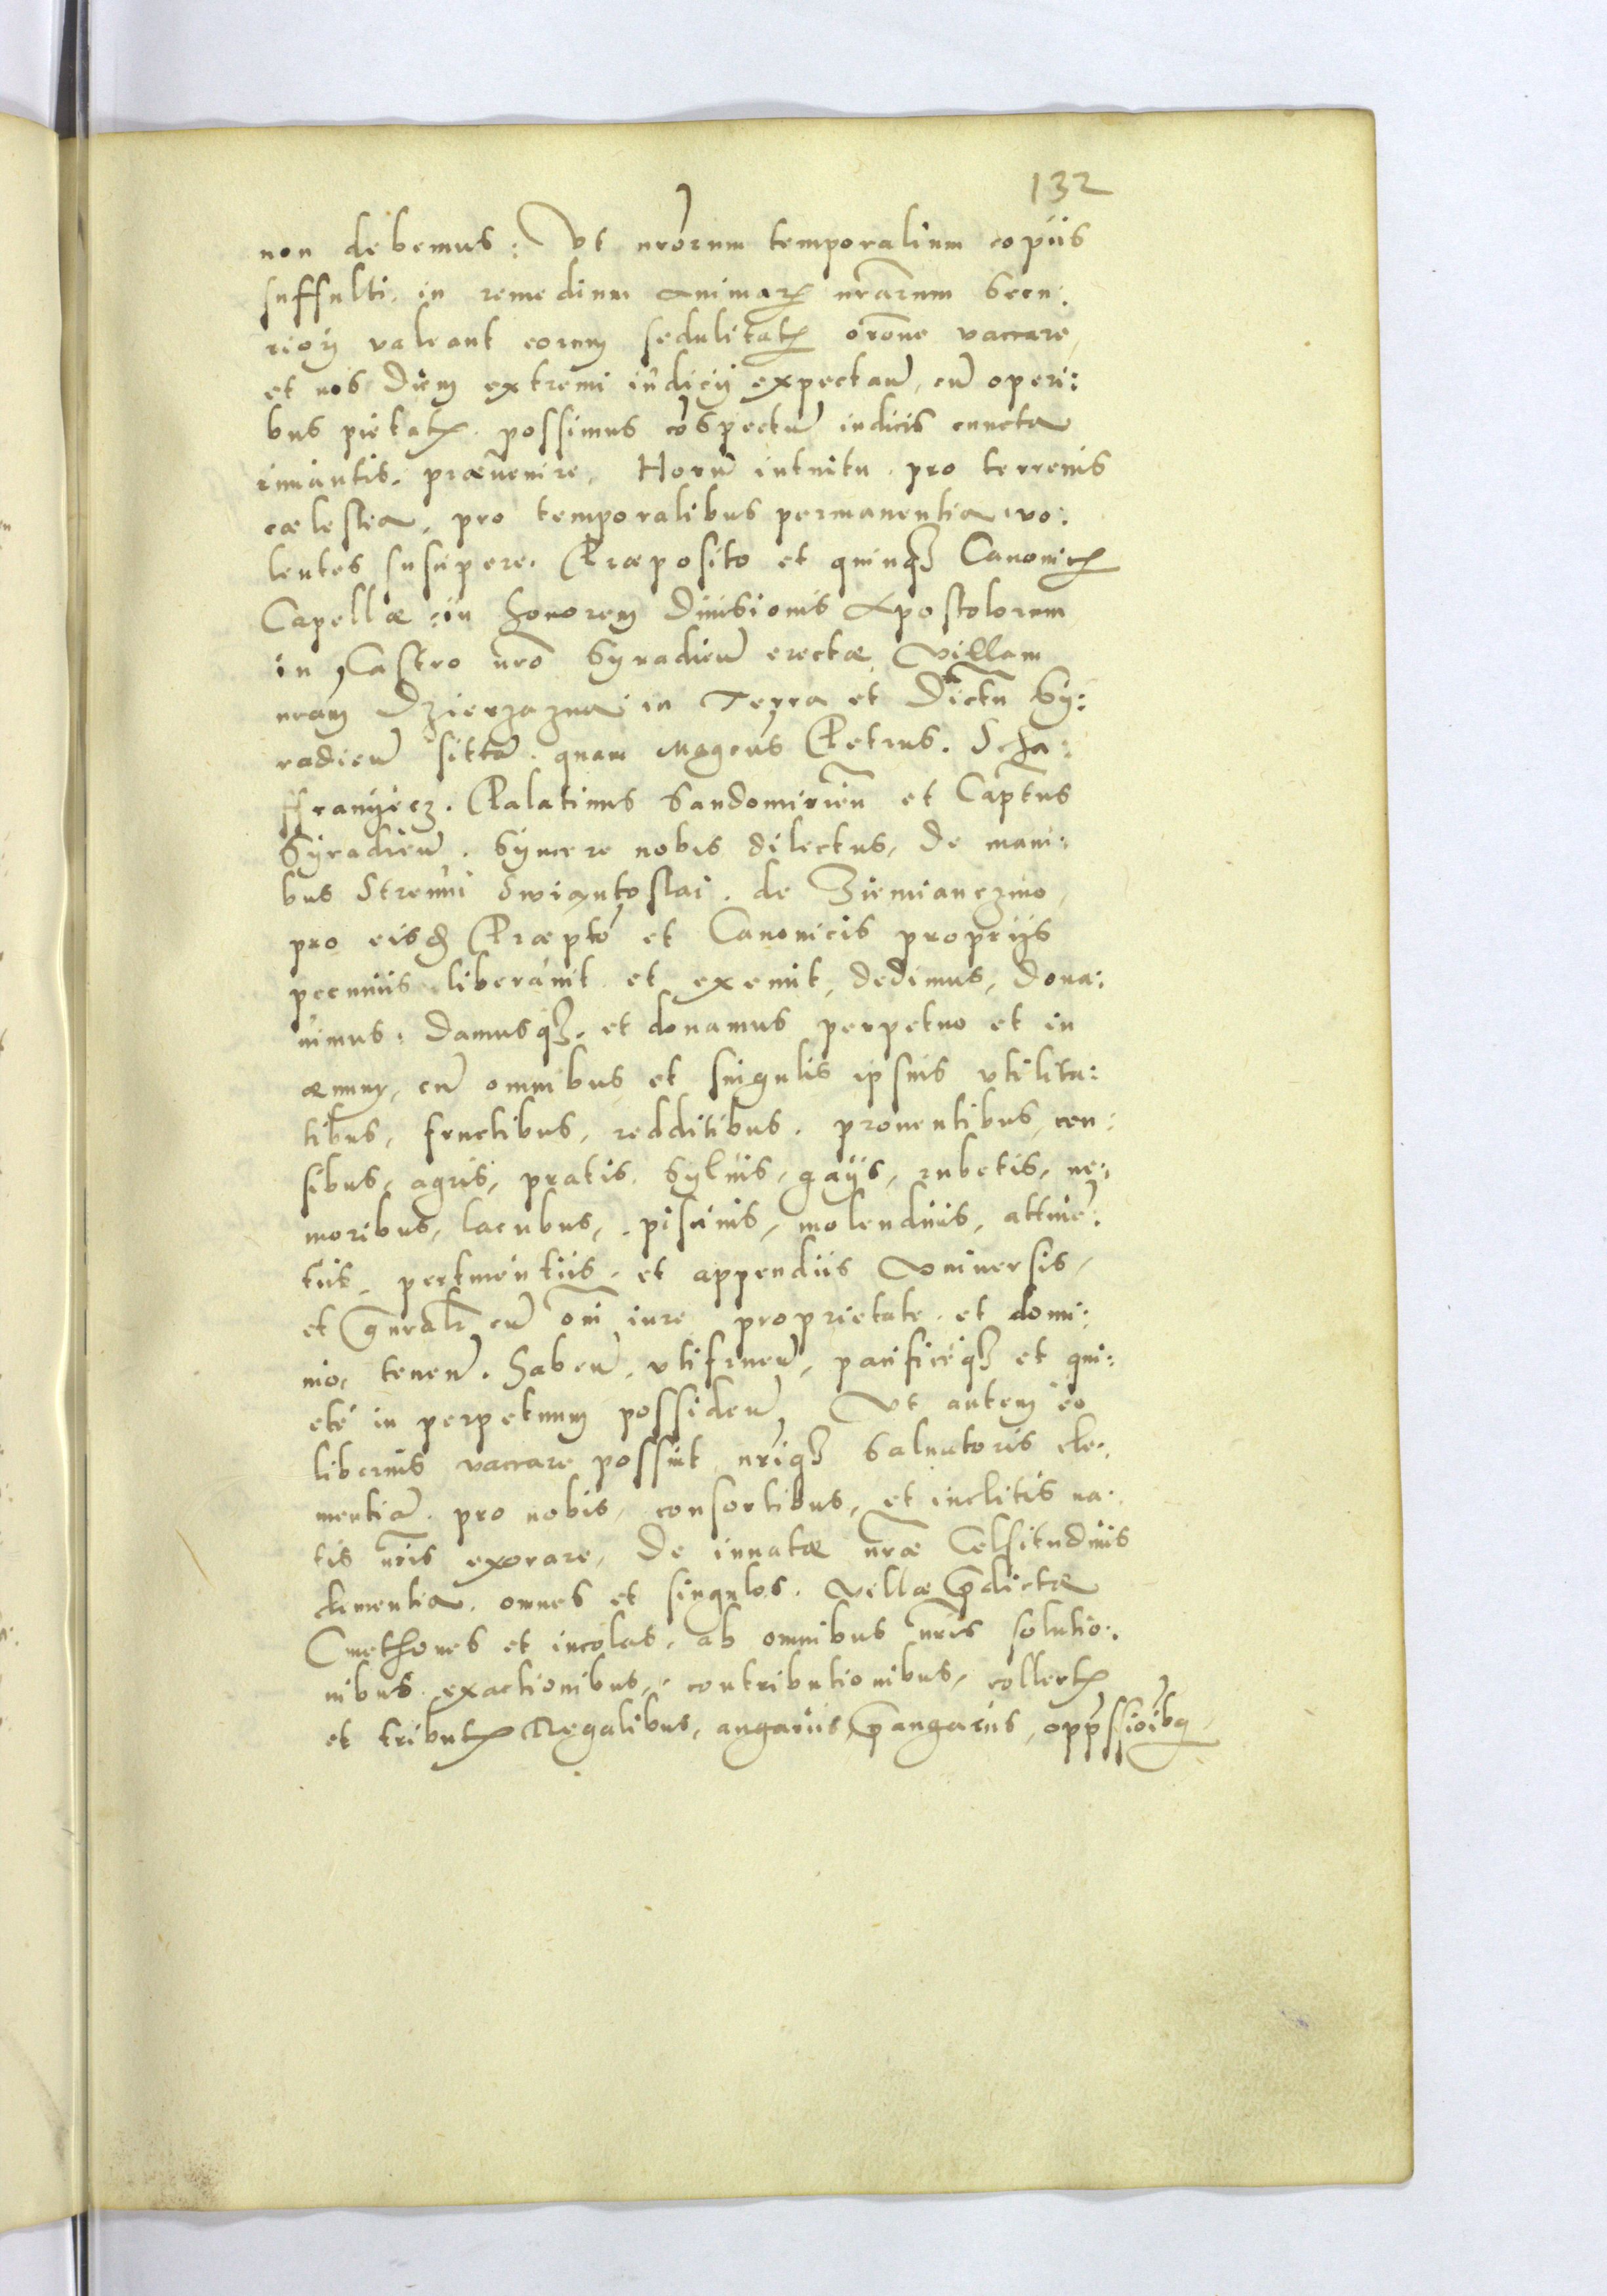 132
non debemus: Vt nrõrum temporalium copiis
suffulti, in remedium Animarꝝ nrãrum Secu:
riorj valeant eorum sedulitatꝭ orõne vaccare,
et nos Diem extremi iudicij expectañ, cũ operi:
bus pietatꝭ. possimus cõspectũ iudicis cuncta
rimantis, præuenire, Horũ intuitu. pro terrenis
cælestia, pro temporalibus permanentia vo:
lentes suscipere. Præposito et quinqꝫ Canonicꝭ
Capellæ in honorem Diuisionis Apostolorum
in Castro nrõ Syradieñ erectæ, Villam
nram Dzierzazna in Terra et Dictũ Sy:
radieñ sittã. quam Magcus Petrus. Scha:
ffranyecz. Palatinus Sandomirieñ et Captñus
Syradieñ. Syncere nobis dilectus, De mani:
bus Strenui Swiantoslai. de Ziemianczino,
pro eisdꝫ Præpto et Canonicis propriis
pecuniis liberauit et exemit, dedimus, dona:
uimus, Damusqꝫ, et donamus perpetuo et in
æuum, cũ omnibus et singulis ipsius vtilita:
tibus, fructibus, redditibus. prouentibus, cen:
sibus, agris, pratis, Syluis, gayis, rubetis, ne:
moribus, lacubus, piscinis, molendinis, attinẽ:
tiis, pertinentiis, et appendiis Vniuersis,
et gnralr̃ cũ om̃i iure proprietate et domi:
nio, teneñ. habeñ, vtifrueñ, pacificeqꝫ et qui:
ete in perpetuum possideñ, Vt autem eo
liberius vaccare possint nr̃iqꝫ Saluatoris cle:
mentiã pro nobis, consortibus, et inclitis na:
tis nr̃is exorare, De innatæ nr̃æ Celsitudinis
clementia. omnes et singulos. Villæ p̃dictæ
Cmethones et incolas, ab omnibus nr̃is solutio:
nibus exactionibus, contributionibus, collectꝭ
et tributꝭ Regalibus, angariis, p̃angariis, opp̃ssioĩbꝫ